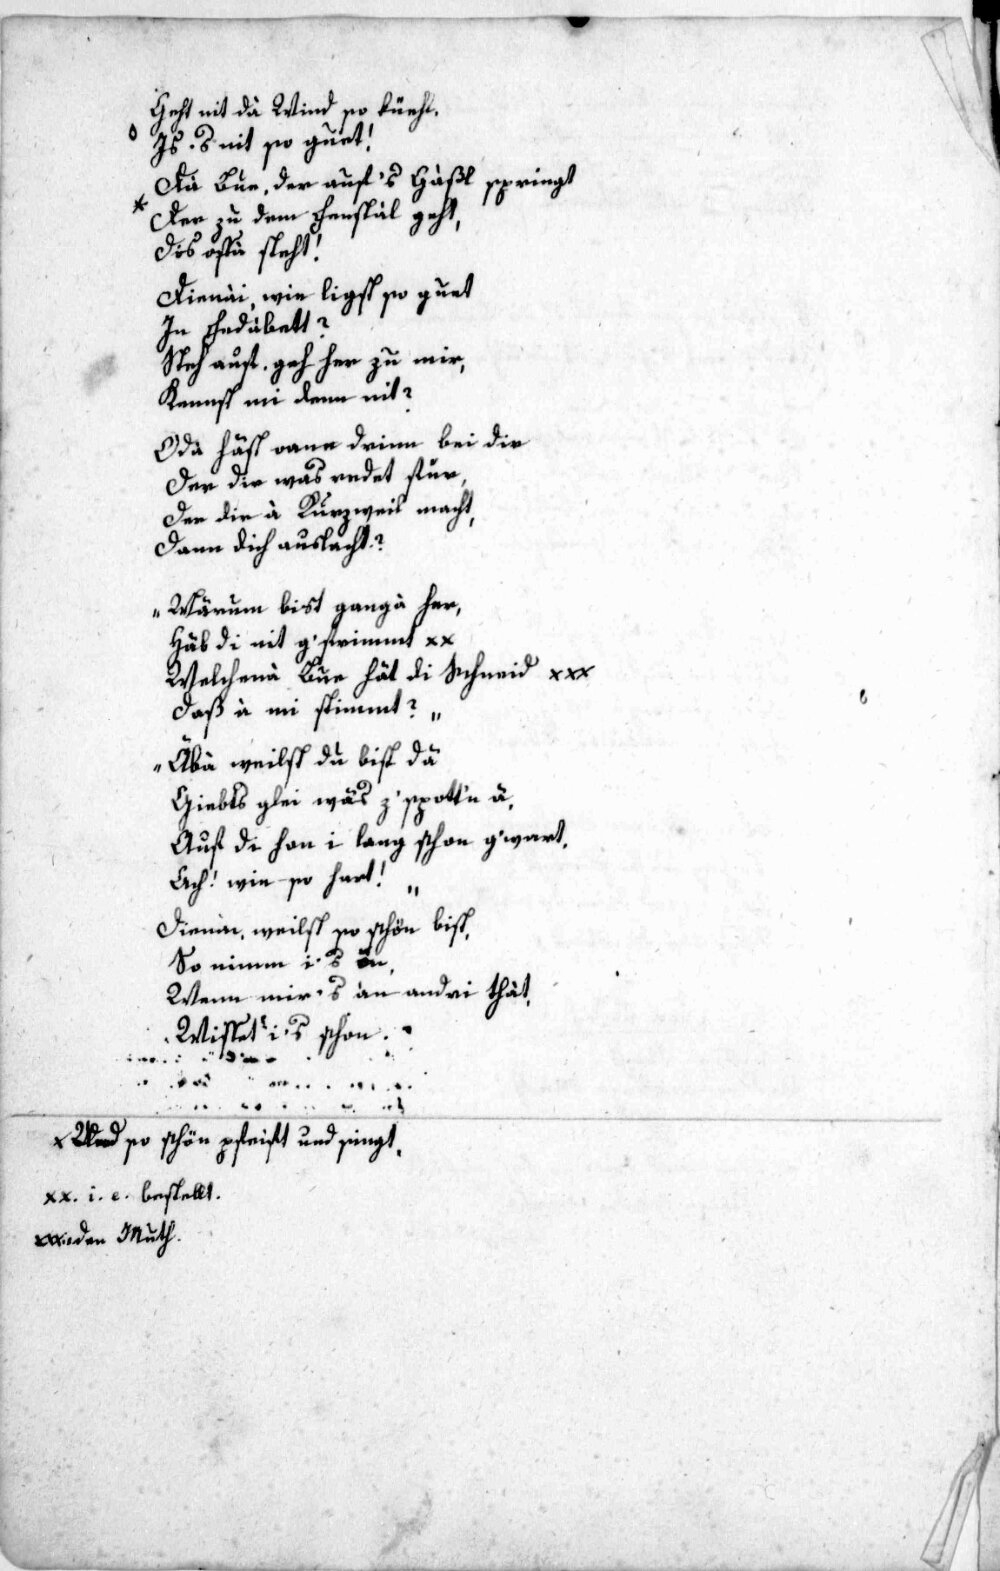 Geht nit dà Wind so küehl.
o Is 's nit so guet!
Dà Bue, der auf 's Gàßl springt
* Der zu dem Fenstàl geht,
Dös oftà steht!
Dienài, wie ligst so guet
In Fedàbett?
Steh auf, geh her zu mir,
Kennst mi denn nit?
Odà häst oane drinn bei dir
Der dir was redet für,
Der dir à Kurzweil macht,
Dann dich auslacht?
„Wärum bist gangà her,
Häb di nit g'frimmt xx
Welchenà Bue hät di Schneid xxx
Daß à mi stimmt?„
„Äbà weilst du bist dä
Giebts glei wäs z'spott'n ä,
Auf di hon i lang schon g'wart,
Ach! wie so hart!„
Dienài, weilst so schön bist,
So nimm i 's än,
Wenn mir 's àn andri thät,
Wisset i 's schon.
x Und so schön pfeift und singt.
xx. i. e. bestellt.
xxx. den Muth.